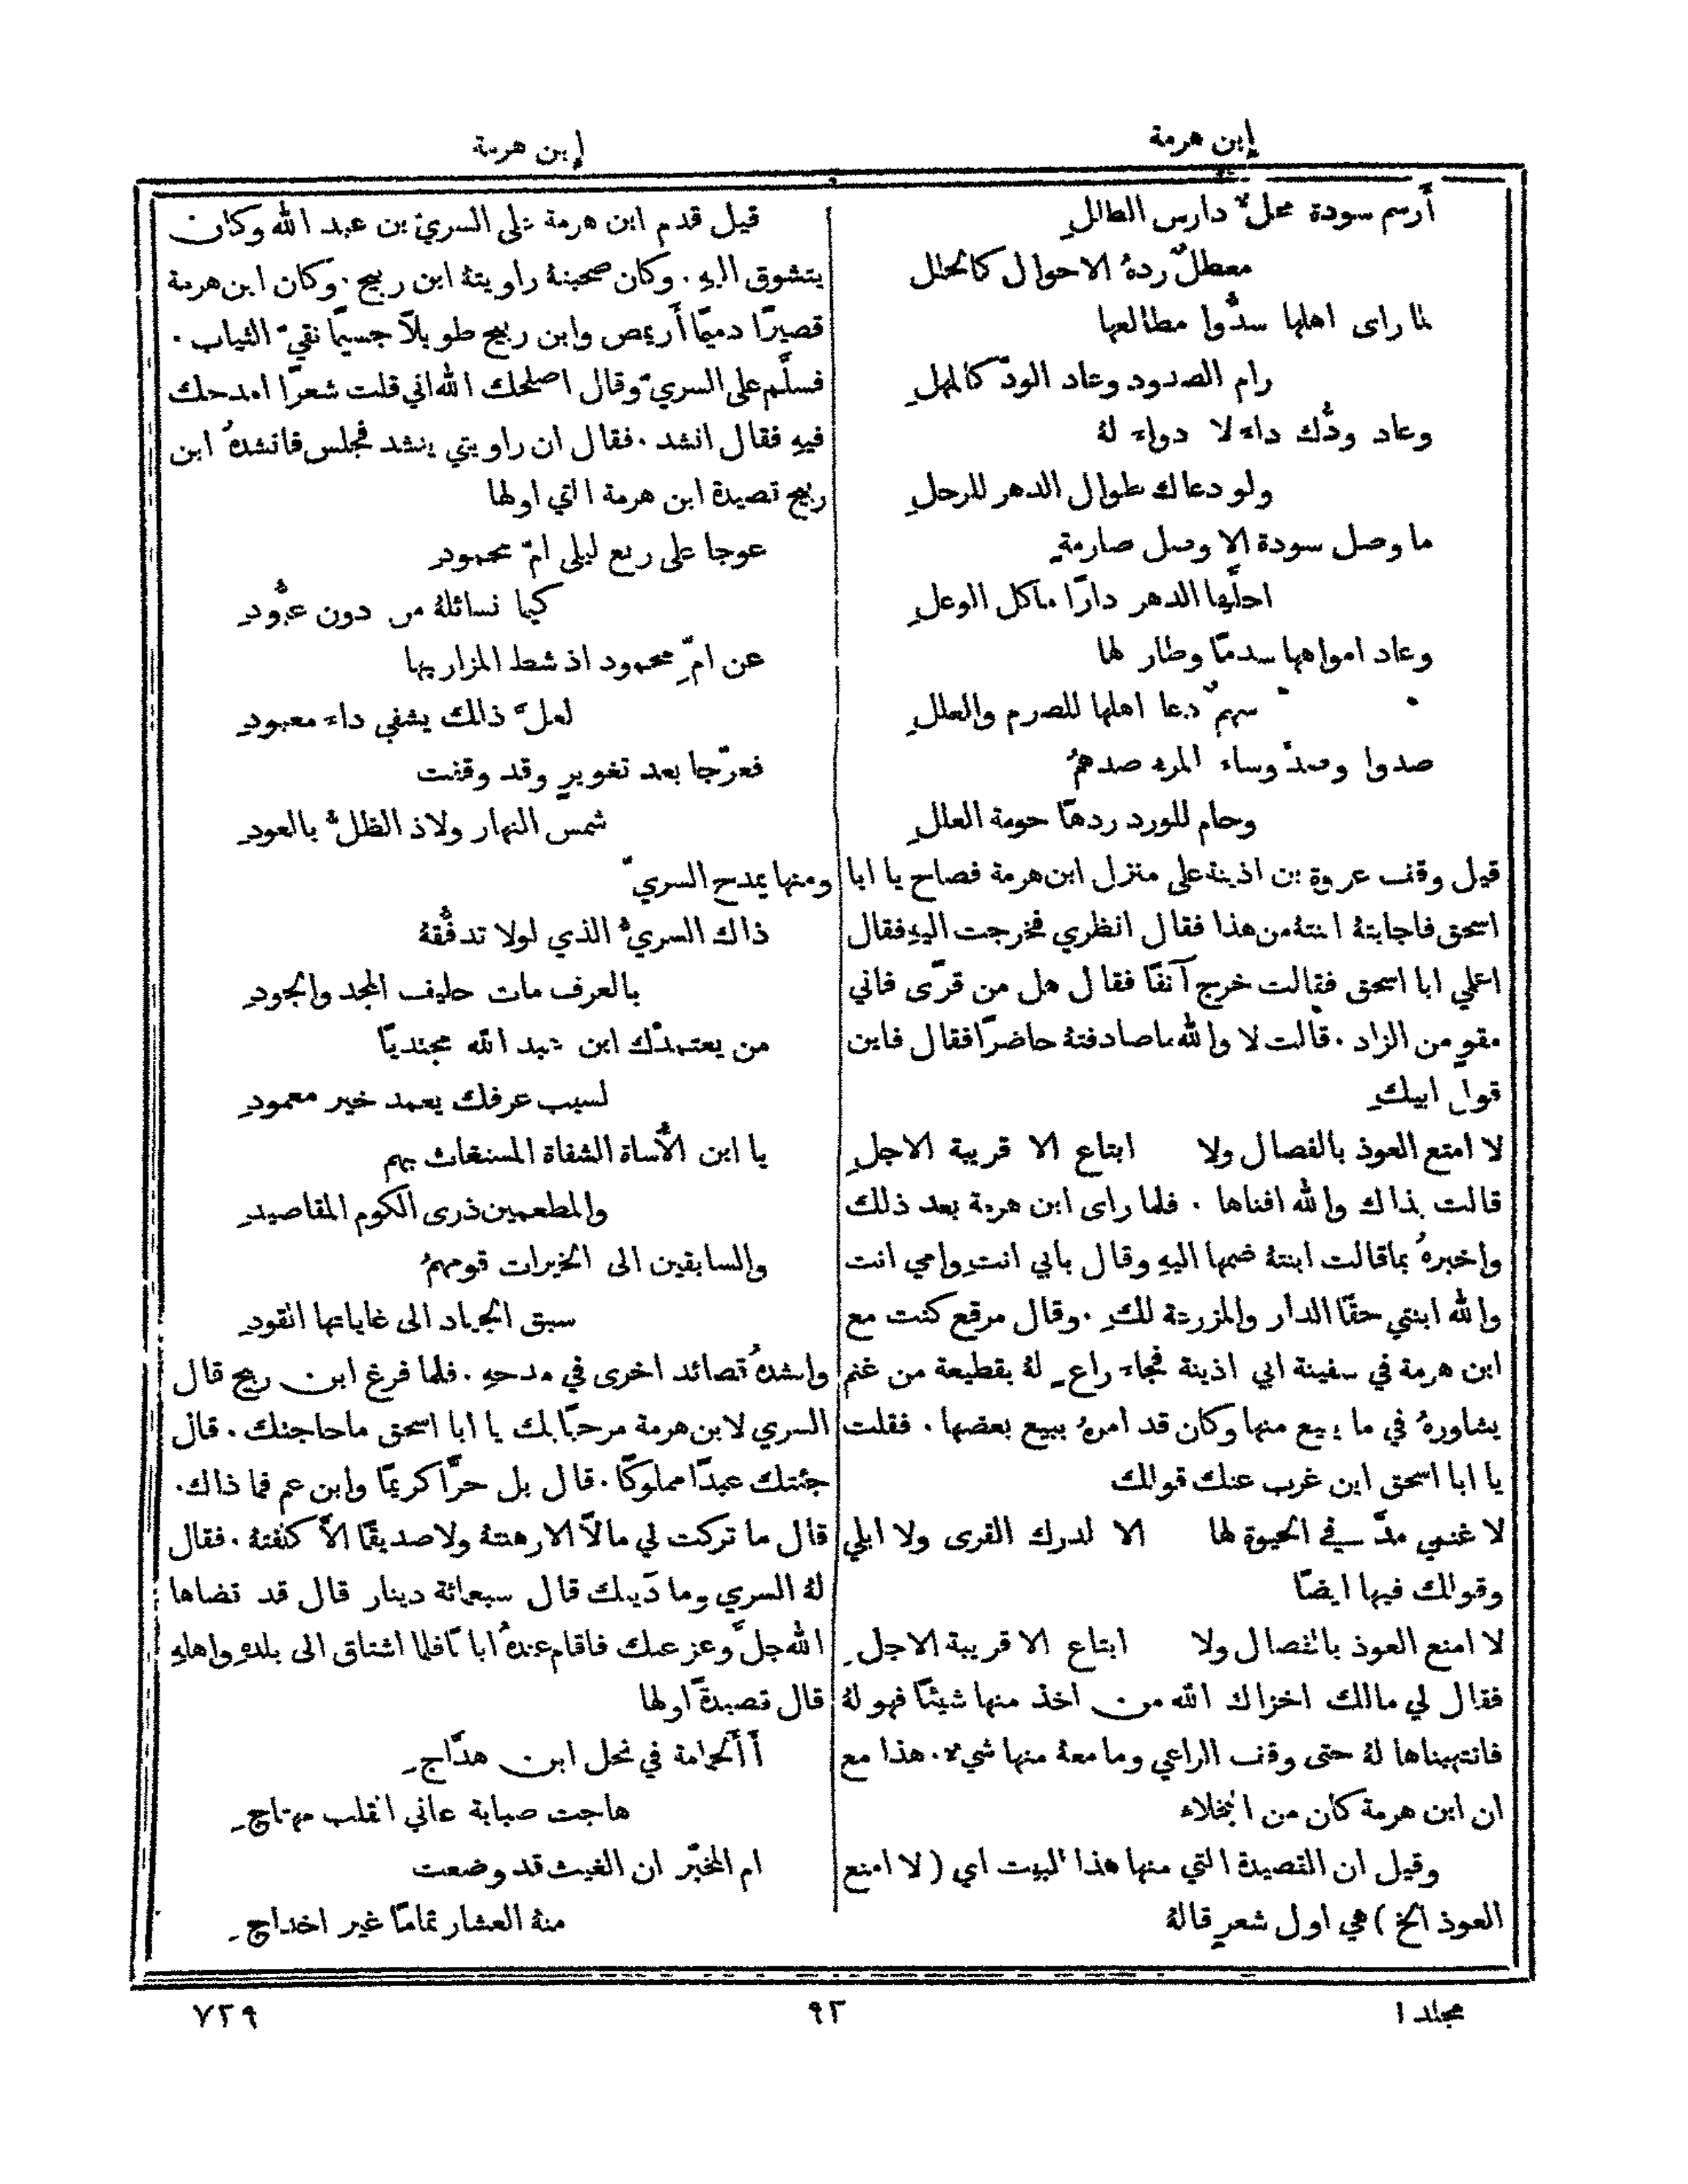 إبن هرمة
إبن هرمة
أرسم سودة محلٌ دارس الطللِ
معطلٌ ردهُ الاحوال كالحلل
لما راى اهلها سدُّوا مطالعها
رام الصدود وعاد الودّ كالمهلِ
وعاد ودُّك داءً لا دواءَ لهُ
ولو دعاك طوال الدهر للرحلِ
ما وصل سودة الا وصل صارمةٍ
احلَّها الدهر دارًا ماكل الوعلِ
وعاد امواهها سدمًا وطار لها
سهمٌ دعا اهلها للصرم والعللِ
صدوا وصدَّ وساء المرء صدهمُ
وحام للورد ردهًا حومة العللِ
قيل وقف عروة بن اذينة على منزل ابن هرمة فصاح يا ابا
اسحق فاجابتهُ ابنتهُ من هذا فقال انظري فخرجت اليهِ فقال
اعلمي ابا اسحق فقالت خرج آنفًا فقال هل من قرًى فاني
مقوٍ من الزاد . قالت لا والله ما صادفتهُ حاضرًا فقال فاين
قول ابيكِ
لا امتع العوذ بالفصال ولا ابتاع الا قريبة الاجلِ
قالت بذاك والله افناها . فلما راى ابن هرمة بعد ذلك
واخبرهُ بما قالت ابنتهُ ضمها اليهِ وقال بابي انتِ وامي انت
والله ابنتي حقًا الدار والمزرعة لكِ . وقال مرقع كنت مع
ابن هرمة في سفينة ابي اذينة فجاءَ راعٍ لهُ بقطيعة من غنم
يشاورهُ في ما يبيع منها وكان قد امرهُ ببيع بعضها . فقلت
يا ابا اسحق اين غرب عنك قولك
لا غنمي مدَّ في الحيوة لها الا لدرك القرى ولا ابلي
وقولك فيها ايضًا
لا امنع العوذ بالفصال ولا ابتاع الا قريبة الاجلِ
فقال لي مالك اخزاك الله من اخذ منها شيئًا فهو لهُ
فانتهبناها لهُ حتى وقف الراعي وما معهُ منها شيءٌ . هذا مع
ان ابن هرمة كان من البخلاء
وقيل ان القصيدة التي منها هذا البيت اي (لا امنع
العوذ الخ) هي اول شعرٍ قالهُ
قيل قدم ابن هرمة على السريّ بن عبد الله وكان
يتشوق اليهِ . وكان صحبتهُ راويتهُ ابن ربيح . وكان ابن هرمة
قصيرًا دميمًا أريمص وابن ربيح طويلًا جسيمًا نقيّ الثياب .
فسلَّم على السريّ وقال اصلحك الله اني قلت شعرًا امدحك
فيهِ فقال انشد . فقال ان راويتي ينشد فجلس فانشدهُ ابن
ربيح قصيدة ابن هرمة التي اولها
عوجا على ربع ليلى امّ محمودِ
كيما نسائلهُ من دون عبُّودِ
عن امِّ محمود اذ شط المزار بها
لعلَّ ذلك يشفي داءَ معمودِ
فعرّجا بعد تغويرٍ وقد وقفت
شمس النهار ولاذ الظلُّ بالعودِ
ومنها يمدح السريّ
ذاك السريُّ الذي لولا تدفُّقهُ
بالعرف مات حليف المجد والجودِ
من يعتمدْك ابن عبد الله مجتديًا
لسيب عرفك يعمد خير معمودِ
يا ابن الأُساة الشفاة المستغاث بهم
والمطعمين ذرى الكوم المقاصيدِ
والسابقين الى الخيرات قومهمُ
سبق الجياد الى غاياتها القودِ
وانشدهُ قصائد اخرى في مدحهِ . فلما فرغ ابن ربيح قال
السري لابن هرمة مرحبًا بك يا ابا اسحق ما حاجتك . قال
جئتك عبدًا مملوكًا . قال بل حرًّا كريمًا وابن عم فما ذاك .
قال ما تركت لي مالًا الا رهنتهُ ولا صديقًا الَّا كلفتهُ . فقال
لهُ السري وما دَينك قال سبعمائة دينار قال قد قضاها
الله جلَّ وعز عنك فاقام عندهُ ايامًا فلما اشتاق الى بلدهِ واهلهِ
قال قصيدةً اولها
أَأَلحمامة في نخل ابن هدَّاجِ
هاجت صبابة عاني القلب مهتاجِ
ام المخبّر ان الغيث قد وضعت
منهُ العشار تمامًا غير اخداجِ
مجلد ١
٩٢
٧٢٩